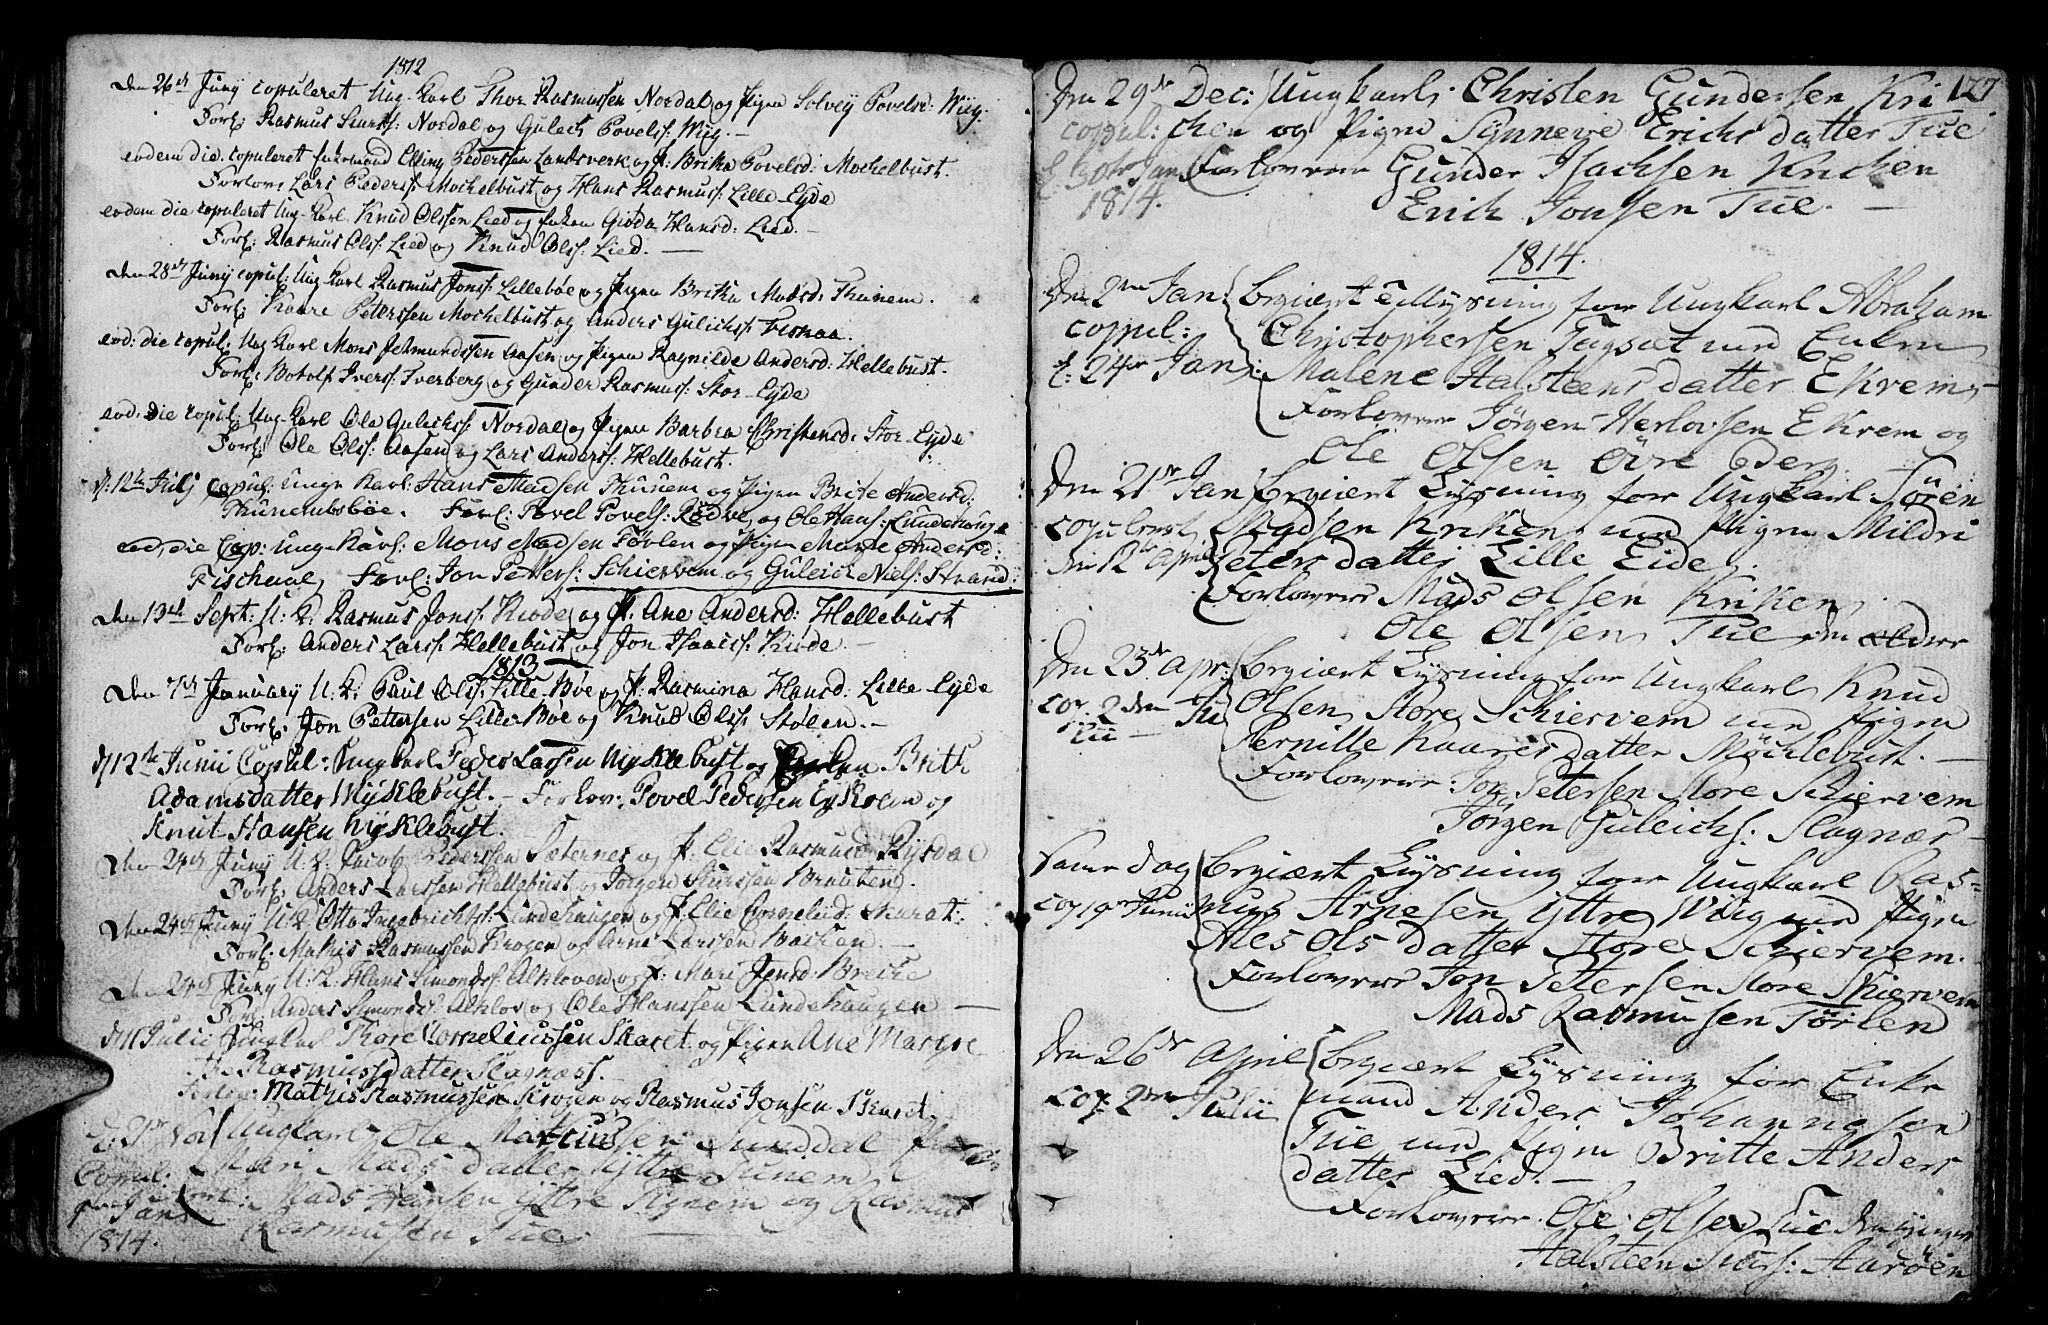 1812
den 26de Juny copuleret Ung-Karl Thor Rasmussen Nordal og Pigen Solvey Povelsd: Myg.
Forl: Rasmus Sivers: Nordal og Gulech Povels: Myg.
eodem die copuleret Enkemand Elling Pederssen Landsverk og P. Brita Povelsd: Mochelbust.
Forlov: Lars Peders: Mochelbust og Hans Rasmus: Lille-Eyde
eodem die copuleret Ung-Karl Knud Olssen Lied og Enken Giøda Hansd: Lied.
Forl: Rasmus Olss: Lied og Knud Olss: Lied.
den 28de Juny copul: Ung Karl Rasmus Jons: Lillebøe og Pigen Brita Madsd: Thunem.
Forl: Kaare Peterssen Mochelbust og Anders Gulichs: Fiskaa.
eod: die copul: Ung Karl Mons Jetmundssen Aasen og Pigen Ragnilde Andersd: Hellebust.
Forl: Botolf Ivers: Tverberg og Gunder Rasmus: Stor-Eyde
eod. die copul: Ung-Karl Ole Gulichs: Nordal og Pigen Barbra Christensd: Stor-Eyde
Forl: Ole Olss: Aasen og Lars Anders: Hellebust.
d: 12te Julj Copul: Unge Karl: Hans Madsen Thunem og Pigen Brite Andersd:
Thunembsbøe. Forl: Povel Povels: Rødve og Ole Hans: Lundehouge
eod, die Cop: Unge Karl: Mons Madsen Tørlen og Pigen Marte Andersd:
Fischaae, Forl: Jon Petters: Schiervem og Guleich Niels: Strand:
Den 13de Sept: U. K. Rasmus Jons: Kiode og P. Ane Andersd: Hellebust
Forl: Anders Lars: Hellebust og Jon Isaacs: Kiøde.
1813
Den 7de January U. K. Paul Ols: Lille-Bøe og P. Rasmina Hansd: Lille Eyde
Forl: Jon Pettersen Lille Bøe og Knud Ols: Stølen.
d 12te Junii Copul: Ungkarl Peder Larsen Myklebust og Brith
Adamsdatter Myklebust. Forlov: Povel Pedersen Eykrem og
Knut Hansen Myklebust.
Den 24de Juny U. K. Jacob Pederssen Sæternes og P. Elie Rasmusd Rysdal
Forl: Anders Larssen Hellebust og Jørgen Siurssen Brauten.
Den 24de Juny U. K. Otto Ingebrichts: Lundehaugen og P. Elie Cornelusd: Skaret:
Forl: Mathis Rasmussen Krogen og Arne Larssen Backen.
Den 24de Juny U. K. Hans Simonds: Alkloven og P. Mari Jensd: Breche
Forl: Anders Simonds: Alklov og Ole Hanssen Lundehaugen
d 11 Julii Ungkarl Thore Corneliussen Skaret og Pigen Ane Margre
the Rasmusdatter Slagnæss.
Forlov: Mathis Rasmussen Krogen og Rasmus Jonsen Skaret.
d: 21 Nov Ungkarl Ole Matiusen Sunddal
Copul: Mari Mads datter Yttre Tunem
Jan Forl: Mads Hansen Yttre Tunem og Rasmus
1814. Rasmussen Tue
127
Den 29de Dec: Ungkarl Christen Gundersen Kri
coppul: chen og Pigen Synneve Erichs datter Tue
d. 30te Jan Forlovere Gunder Isachsen Krichen
1814. Erich Jonsen Tue.
1814.
Den 2den Jan: begiert Tillysning for Ungkarl Abraham
coppul: Christophersen Tagsæt med Enken
d: 24de Jan: Malene Halsteens datter Ekrem,
Forlovere Jørgen Herlovsen Ekrem og
Ole Olsen Øvre Berg.
Den 21de Jan begiert Lysning for Ungkarl Søren
copuleret Madsen Kriken med Pigen Mildri
den 12te April Peters datter Lille Eide.
Forlovere Mads Olsen Kriken
Ole Olsen Tue den eldere
Den 23de Apr: begiert Lysning for Ungkarl Knud
cop. 2den Ju Olsen Store Schiervem med Pigen
lii Pernille Kaares datter Möchlebust.
Forlovere: Jon Petersen Store Schiervem
Jørgen Guleichs: Slagnæs
Samme dag begiert Lysning for Ungkarl Ras-
cop 19de Junii mus Arnesen Yttre Wiig med Pigen
Ales Ols datter Store Schiervem.
Forlovere Jon Petersen Store Skiervem
Mads Rasmusen Tørlen
Den 26de April begiert Lysning for Enke
cop. 2den Julii mand Anders Johannesen
Tue med Pigen Britte Anders
datter Lied.
Forlovere. Ole Olsen Tue den yngere
Halsteen Siurs: Aarøen